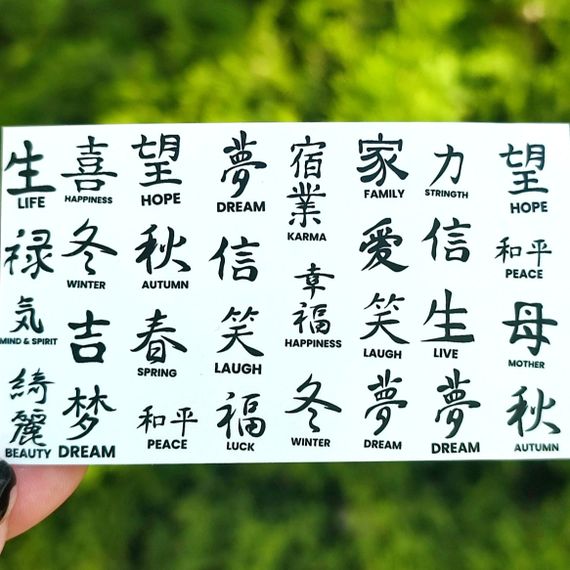 生
LIFE
喜
HAPPINESS
望
HOPE
夢
DREAM
宿
業
KARMA
家
FAMILY
力
STRINGTH
望
HOPE
禄
冬
WINTER
秋
AUTUMN
信
幸
福
HAPPINESS
愛
信
和平
PEACE
気
MIND & SPIRIT
吉
春
SPRING
笑
LAUGH
笑
LAUGH
生
LIVE
母
MOTHER
綺
麗
BEAUTY
梦
DREAM
和平
PEACE
福
LUCK
冬
WINTER
夢
DREAM
夢
DREAM
秋
AUTUMN